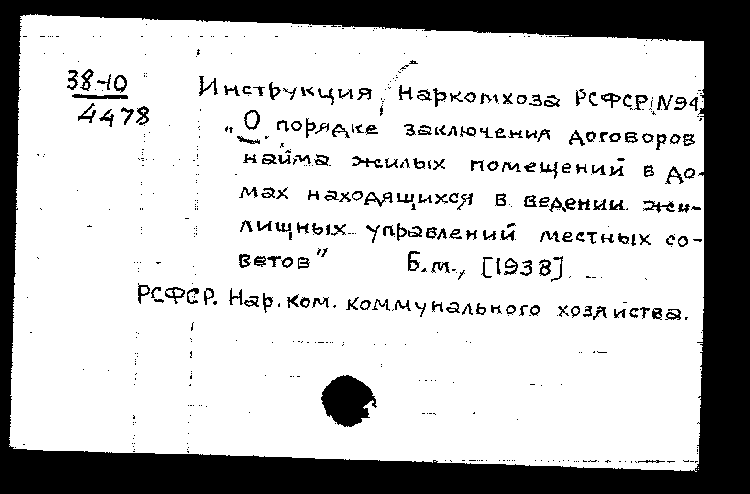 38-10
4478
Инструкция Наркомхоза РСФСР (N94)
„О порядке заключения договоров
найма жилых помещений в до-
мах находящихся в ведении жи-
лищных управлений местных со-
ветов" Б.м., [1938]
РСФСР. Нар. ком. коммунального хозяйства.